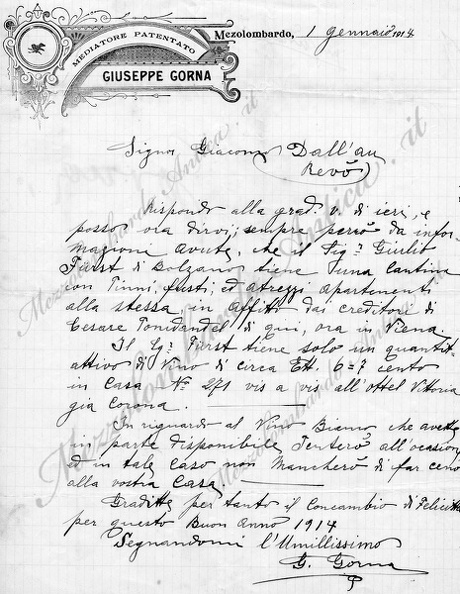 MEDIATORE PATENTATO
GIUSEPPE GORNA
Mezolombardo, 1 Gennaio 1914
Signor Giacomo Dall'au
Revò
Rispondo alla grad. v. di ieri, e
posso ora dirvi, sempre però da infor-
mazioni avute, che il Sigr Giulio
Fürst di Bolzano, tiene una Cantina
con Tinni, fusti, ed atrezzi apartenenti
alla stessa, in affitto dai creditori di
Cesare Tonidandel di qui, ora in Viena
Il Sgr Fürst tiene solo un quantit-
attivo di Vino di circa Ett. 6-7 cento
in Casa No 271 vis a vis all'ottel Vittoria
gia Corona.
In riguardo al Vino Bianco che avette
in parte disponibile, Tenterò all'ocasione
ed in tale Caso non Mancherò di far ceno
alla vostra Casa.
Graditte per tanto il Concambio di Felicità
per questo Buon Anno 1914
Segnandomi l'Umillissimo
G. Gorna
Mezzolombardo Antica.it